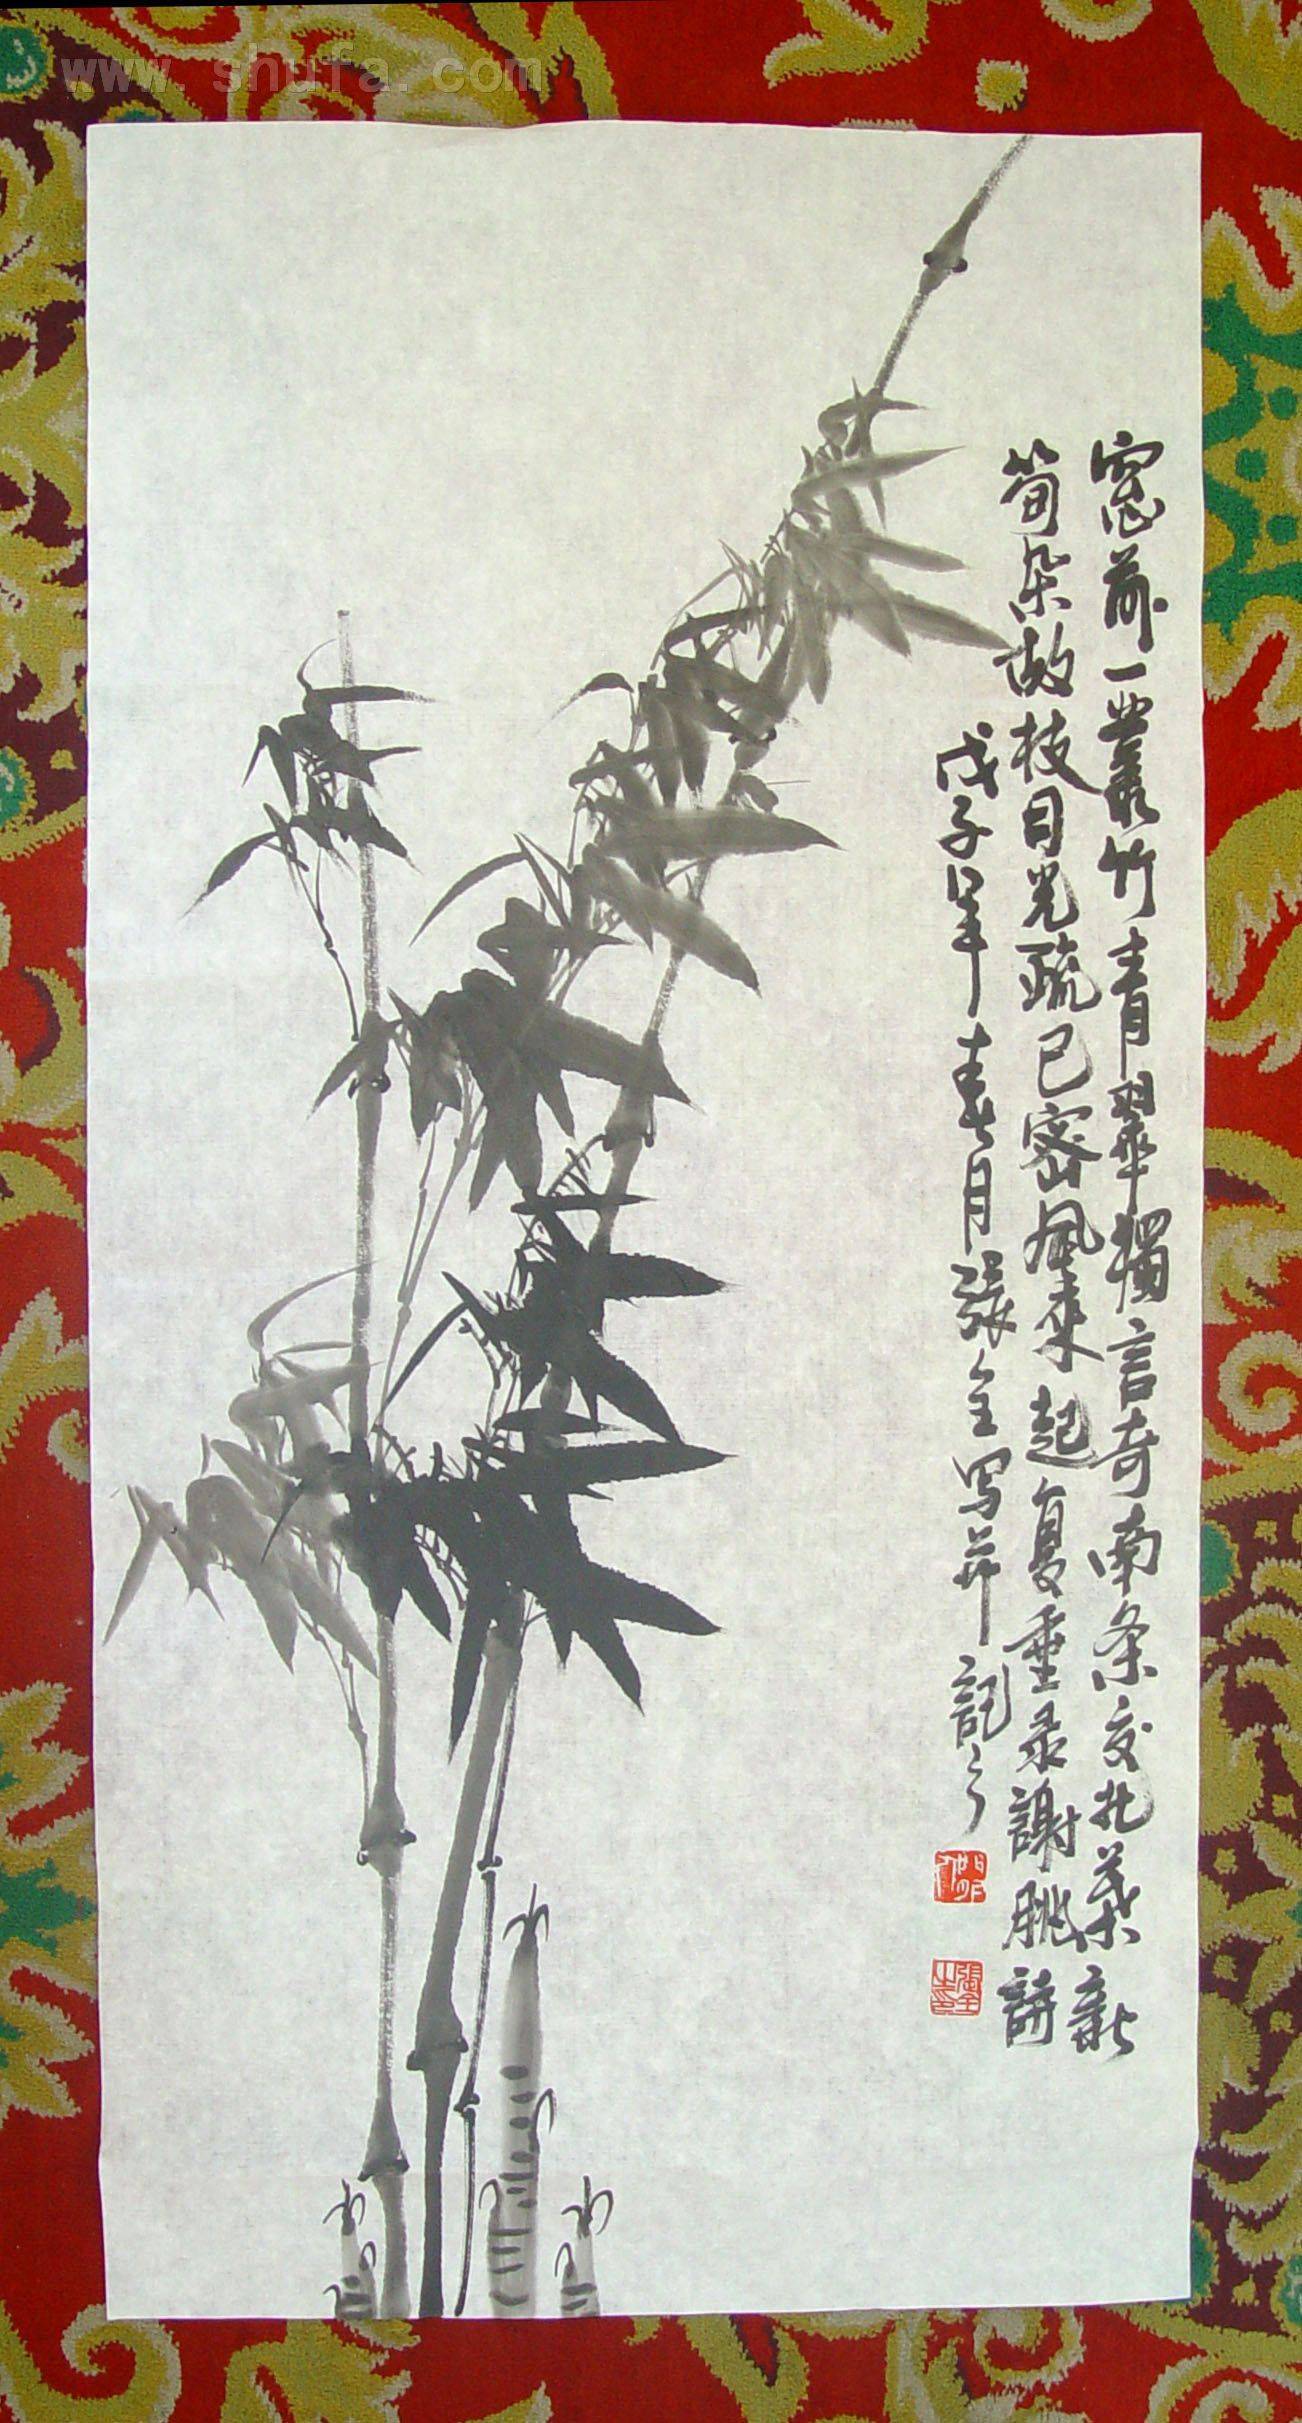 www.shufa.com
窓前一叢竹青翠獨言奇南条交北葉新
筍杂故枝月光疏已密風來起复垂录謝朓詩
戊子年春月張全写并記之
張全之印